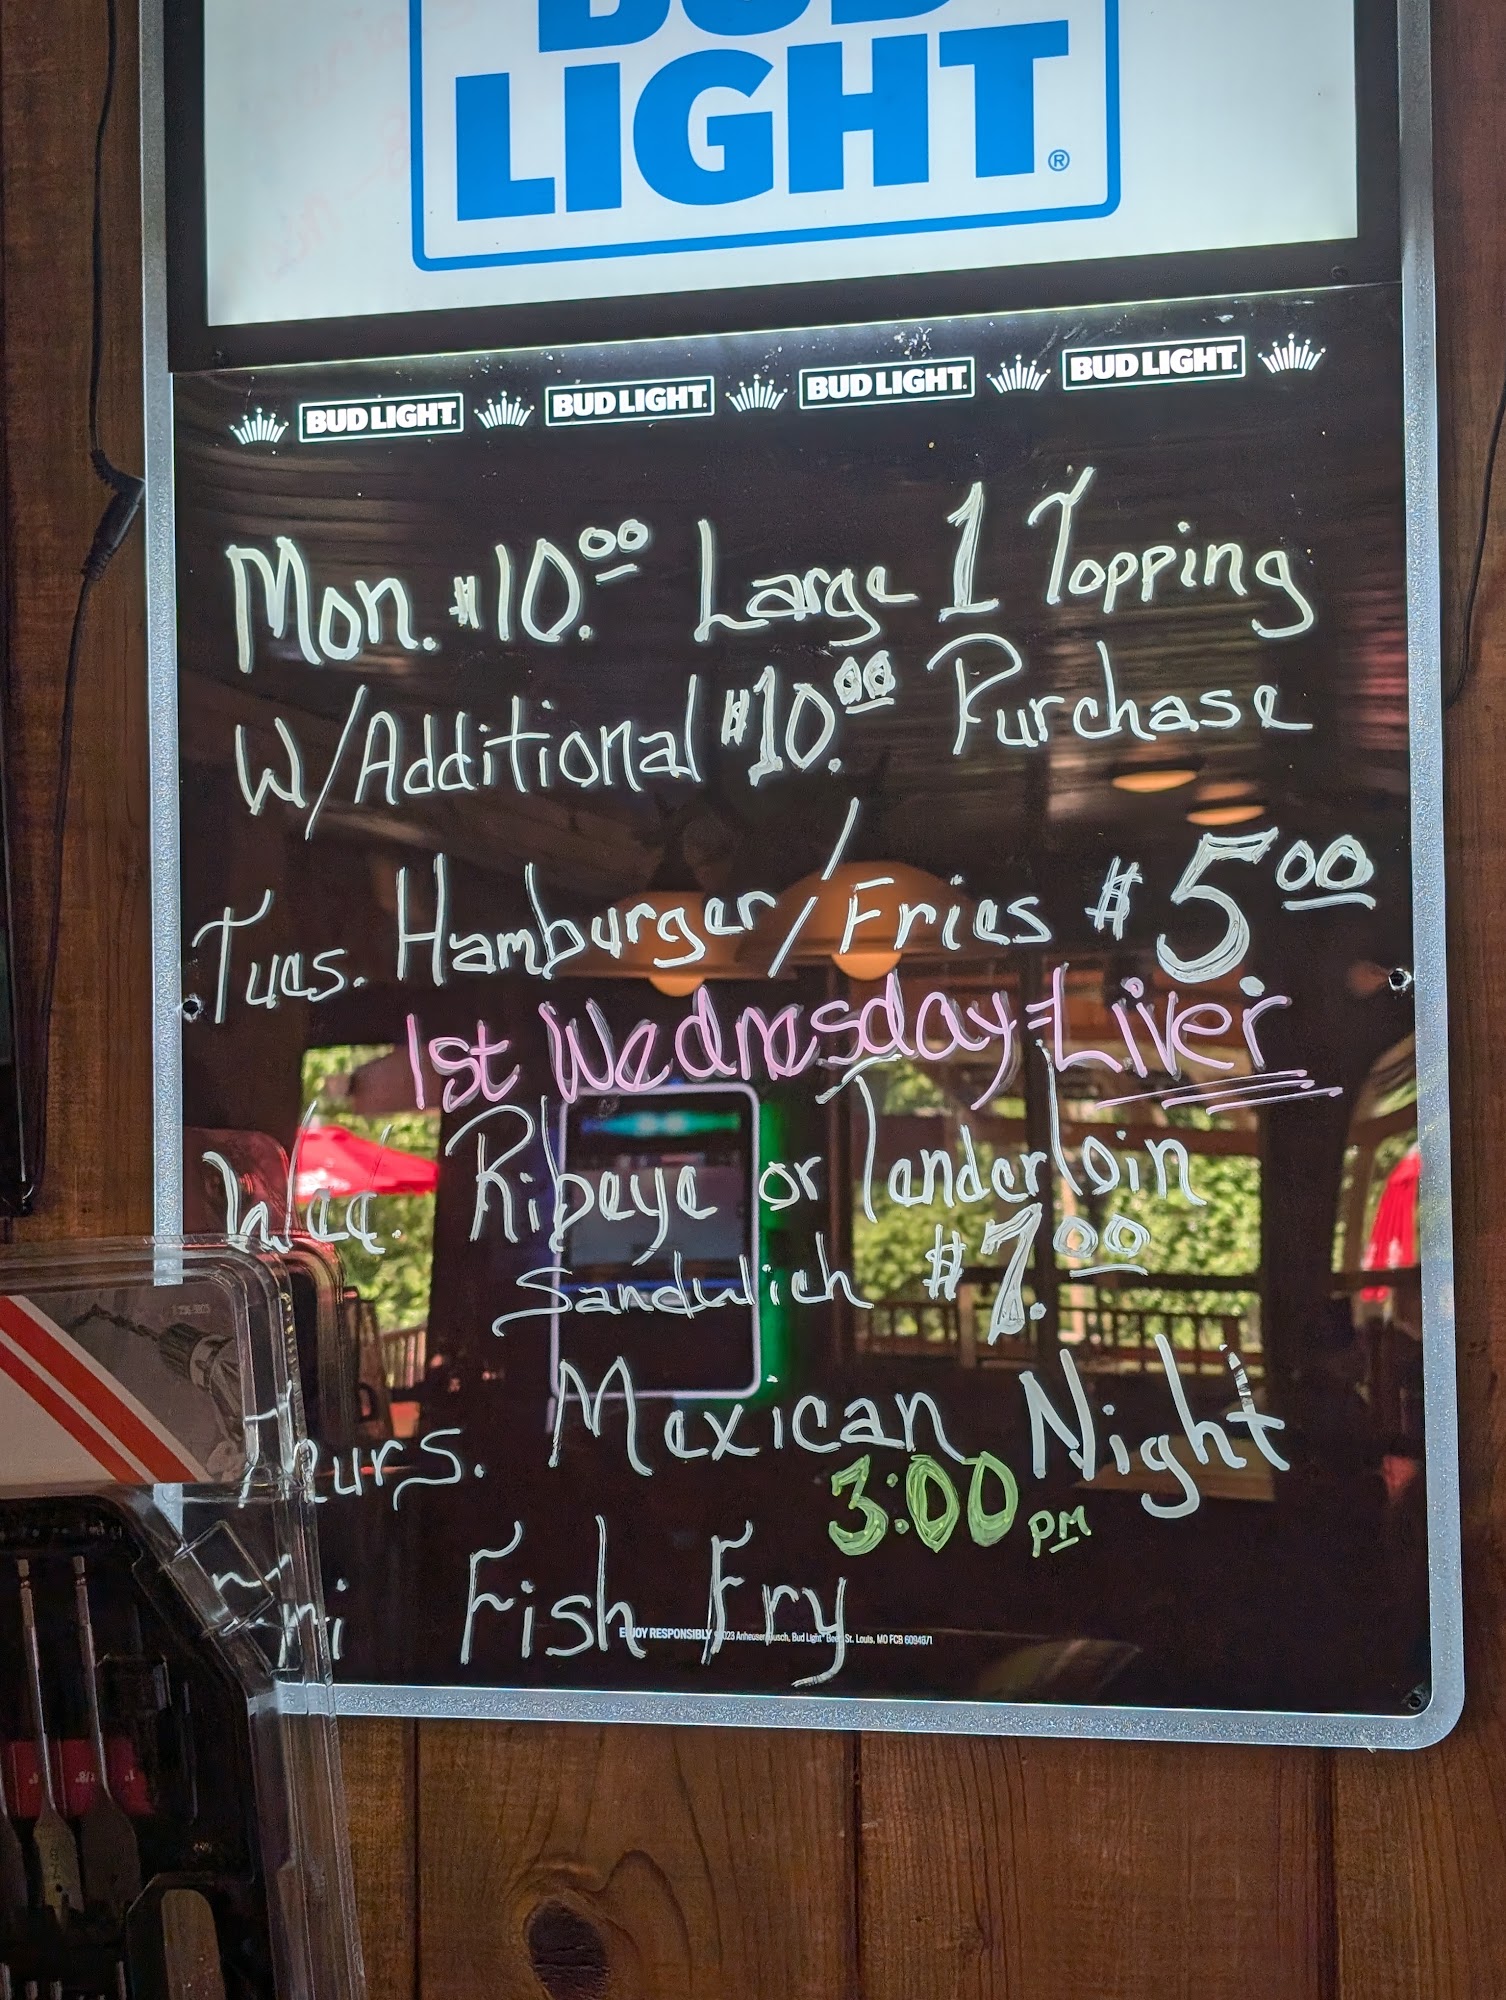 BUD
LIGHT®
BUD LIGHT. BUD LIGHT. BUD LIGHT. BUD LIGHT.
Mon. $10.00 Large 1 Topping
W/Additional $10.00 Purchase
Tues. Hamburger/Fries $5.00
1st Wednesday=Liver
Wed. Ribeye or Tenderloin
Sandwich $7.00
Thurs. Mexican Night
3:00 PM
Fri Fish Fry
ENJOY RESPONSIBLY ©2023 Anheuser-Busch, Bud Light® Beer, St. Louis, MO FCB 6094871